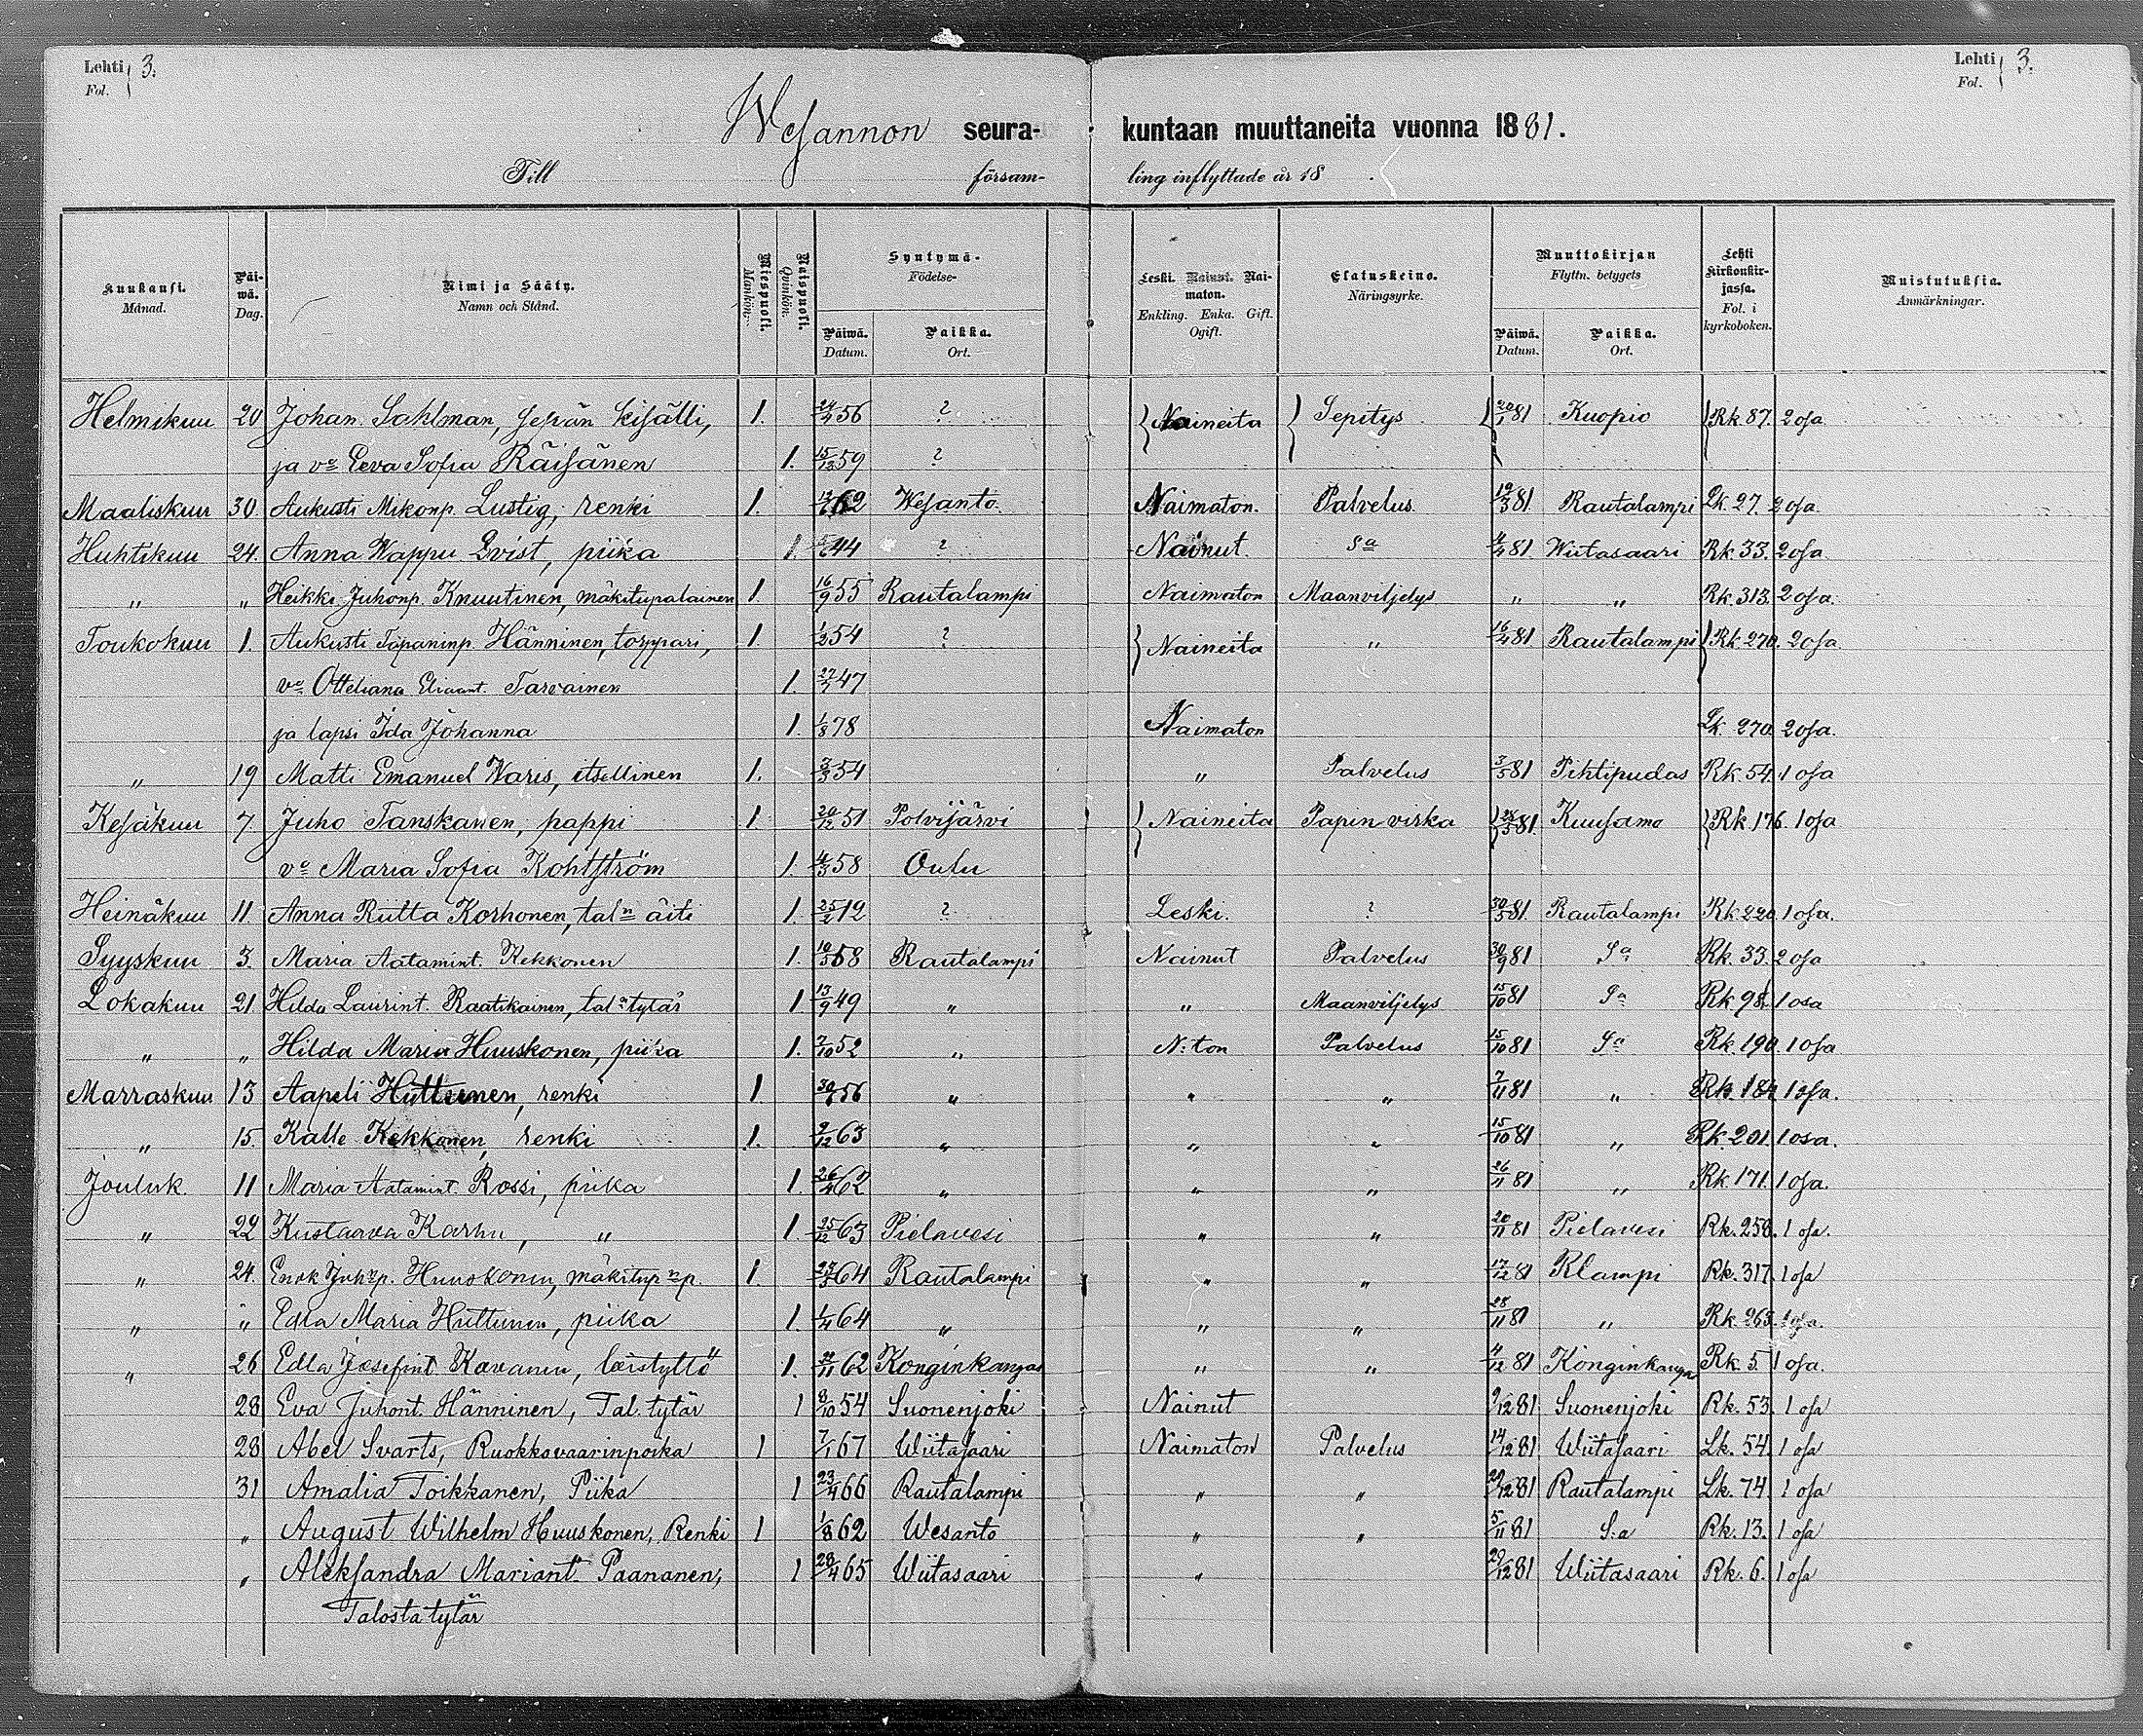 Lehti 3.
Fol.
Lehti 3.
Fol.
Wesannon seura- kuntaan muuttaneita vuonna 1881.
Till försam- ling inflyttade år 18 .
Kuukausi. Månad. Päi-wä. Dag. Nimi ja Sääty. Namn och Stånd. Miespuoli. Mankön. Naispuoli. Qvinkön. Syntymä- Födelse- Päiwä. Datum. Paikka. Ort. Leski. Nainut. Nai-maton. Enkling. Enka. Gift. Ogift. Elatuskeino. Näringsyrke. Muuttokirjan Flyttn. betygets Päiwä. Datum. Paikka. Ort. Lehti kirkonkir-jassa. Fol. i kyrkoboken. Muistutuksia. Anmärkningar.
Helmikuu 20 Johan Sahlman, sepän kisälli, 1. 24/4 56 ? Naineita Sepitys 20/1 81 Kuopio Rk. 87. 2 osa
ja vo Eeva Sofia Räisänen 1. 15/12 59 ?
Maaliskuu 30. Aukusti Mikonp. Lustig, renki 1. 62 Wesanto. Naimaton. Palvelus. 19/3 81 Rautalampi Lk. 27. 2 osa.
Huhtikuu 24. Anna Wappu Qvist, piika 1. 44 ? Nainut. Sa 4/4 81 Wiitasaari Rk. 33. 2 osa.
„ „ Heikki Juhonp. Knuutinen, mäkitupalainen 1. 16/9 55 Rautalampi Naimaton Maanviljelys „ „ Rk. 313. 2 osa.
Toukokuu 1. Aukusti Tapaninp. Hänninen, torppari, 1. 1/2 54 ? Naineita „ 16/4 81 Rautalampi Rk. 270. 2 osa.
vo Otteliana Eliaant. Tarvainen 1. 27/7 47
ja lapsi Ida Johanna 1. 1/8 78 Naimaton Lk. 270 2 osa.
„ 19 Matti Emanuel Waris, itsellinen 1. 3/3 54 „ Palvelus 3/5 81 Pihtipudas Rk. 54. 1 osa
Kesäkuu 7. Juho Tanskanen, pappi 1. 20/12 51 Polvijärvi Naineita Papin virka 81 Kuusamo Rk. 176. 1 osa
vo Maria Sofia Kohtström 1. 4/3 58 Oulu
Heinäkuu 11. Anna Riitta Korhonen, taln äiti 1. 25/2 12 ? Leski. ? 30/5 81. Rautalampi Rk 220. 1 osa.
Syyskuu 3. Maria Aatamint. Kekkonen 1. 10/5 58 Rautalampi Nainut Palvelus 30/9 81 Sa Rk. 33. 2 osa
Lokakuu 21. Hilda Laurint. Raatikainen, taln tytär 1. 13/9 49 „ „ Maanviljelys 15/10 81 Sa Rk 98. 1 osa
„ „ Hilda Maria Huuskonen, piika 1. 7/10 52 „ N:ton Palvelus 15/10 81 Sa Rk. 190. 1 osa
Marraskuu 13 Aapeli Huttunen, renki 1. 56 „ „ „ 7/11 81 „ Rk. 184. 1 osa.
„ 15. Kalle Kekkonen, renki 1. 9/12 63 „ „ „ 15/10 81 „ Rk. 201. 1 osa.
Jouluk. 11 Maria Aatamint. Rossi, piika 1. 26/4 62 „ „ „ 26/11 81 „ Rk. 171. 1 osa.
„ 22 Kustaava Karhu, „ 1. 25/12 63 Pielavesi „ „ 20/11 81 Pielavesi Rk. 258. 1 osa.
„ 24. Enok Juhnp. Huuskonen, mäkitup np. 1. 27/3 64 Rautalampi „ „ 17/12 81 Rlampi Rk. 317. 1 osa
„ „ Edla Maria Huttunen, piika 1. 1/4 64 „ „ „ 28/11 81 „ Rk. 263. 1 osa.
„ 26 Edla Josefint. Kavanen, loistyttö 1. 62 Konginkangas „ „ 4/12 81 Konginkangas Rk. 5. 1 osa.
28 Eva Juhont. Hänninen, Tal. tytär 1 8/10 54 Suonenjoki Nainut 9/12 81 Suonenjoki Rk. 53. 1 osa
28 Abel Svarts, Ruokkovaarinpoika 1 7/1 67 Wiitasaari Naimaton Palvelus 14/12 81 Wiitasaari Lk. 54. 1 osa
31 Amalia Toikkanen, Piika 1 23/4 66 Rautalampi „ „ 29/12 81 Rautalampi Lk. 74. 1 osa
„ August Wilhelm Huuskonen, Renki 1 1/8 62 Wesanto „ „ 5/11 81 S:a Rk. 13. 1 osa
„ Aleksandra Mariant. Paananen, 1 28/4 65 Wiitasaari „ 29/12 81 Wiitasaari Rk. 6. 1 osa
Talosta tytär